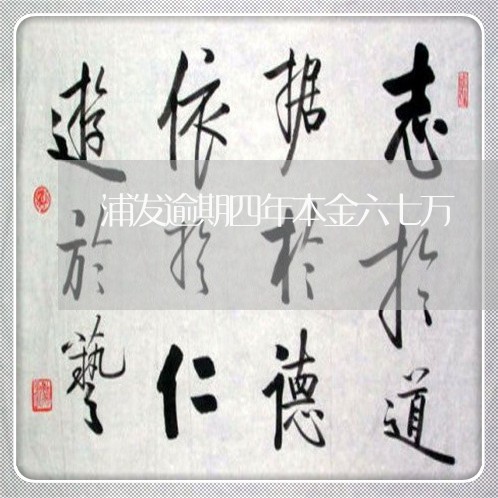 志於道
据於德
依於仁
遊於藝
浦发逾期四年本金六七万